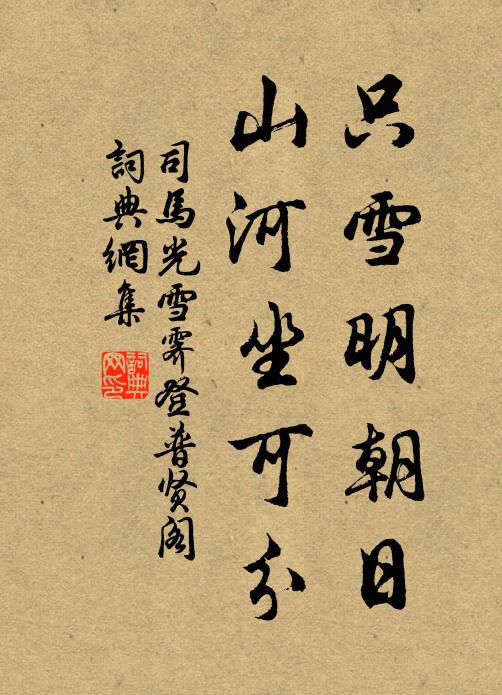 只雪明朝日
山河坐可分
司馬光雪霽登普贤阁
詞典網集
詞典
网印